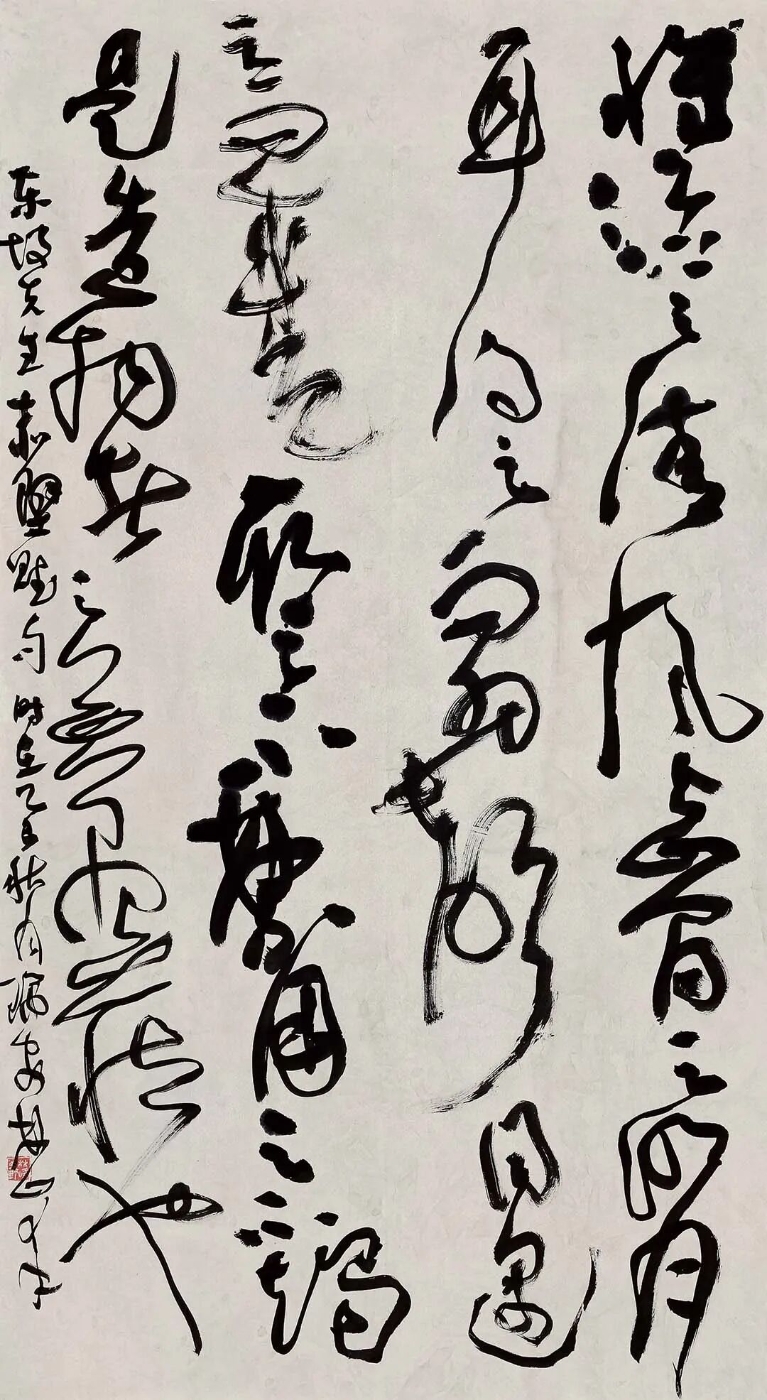 惟江上之清風與山間之明月
耳得之而為聲目遇
之而成色取之不禁用之不竭
是造物者之無盡藏也
东坡先生赤壁赋句时在乙秋月瑞安